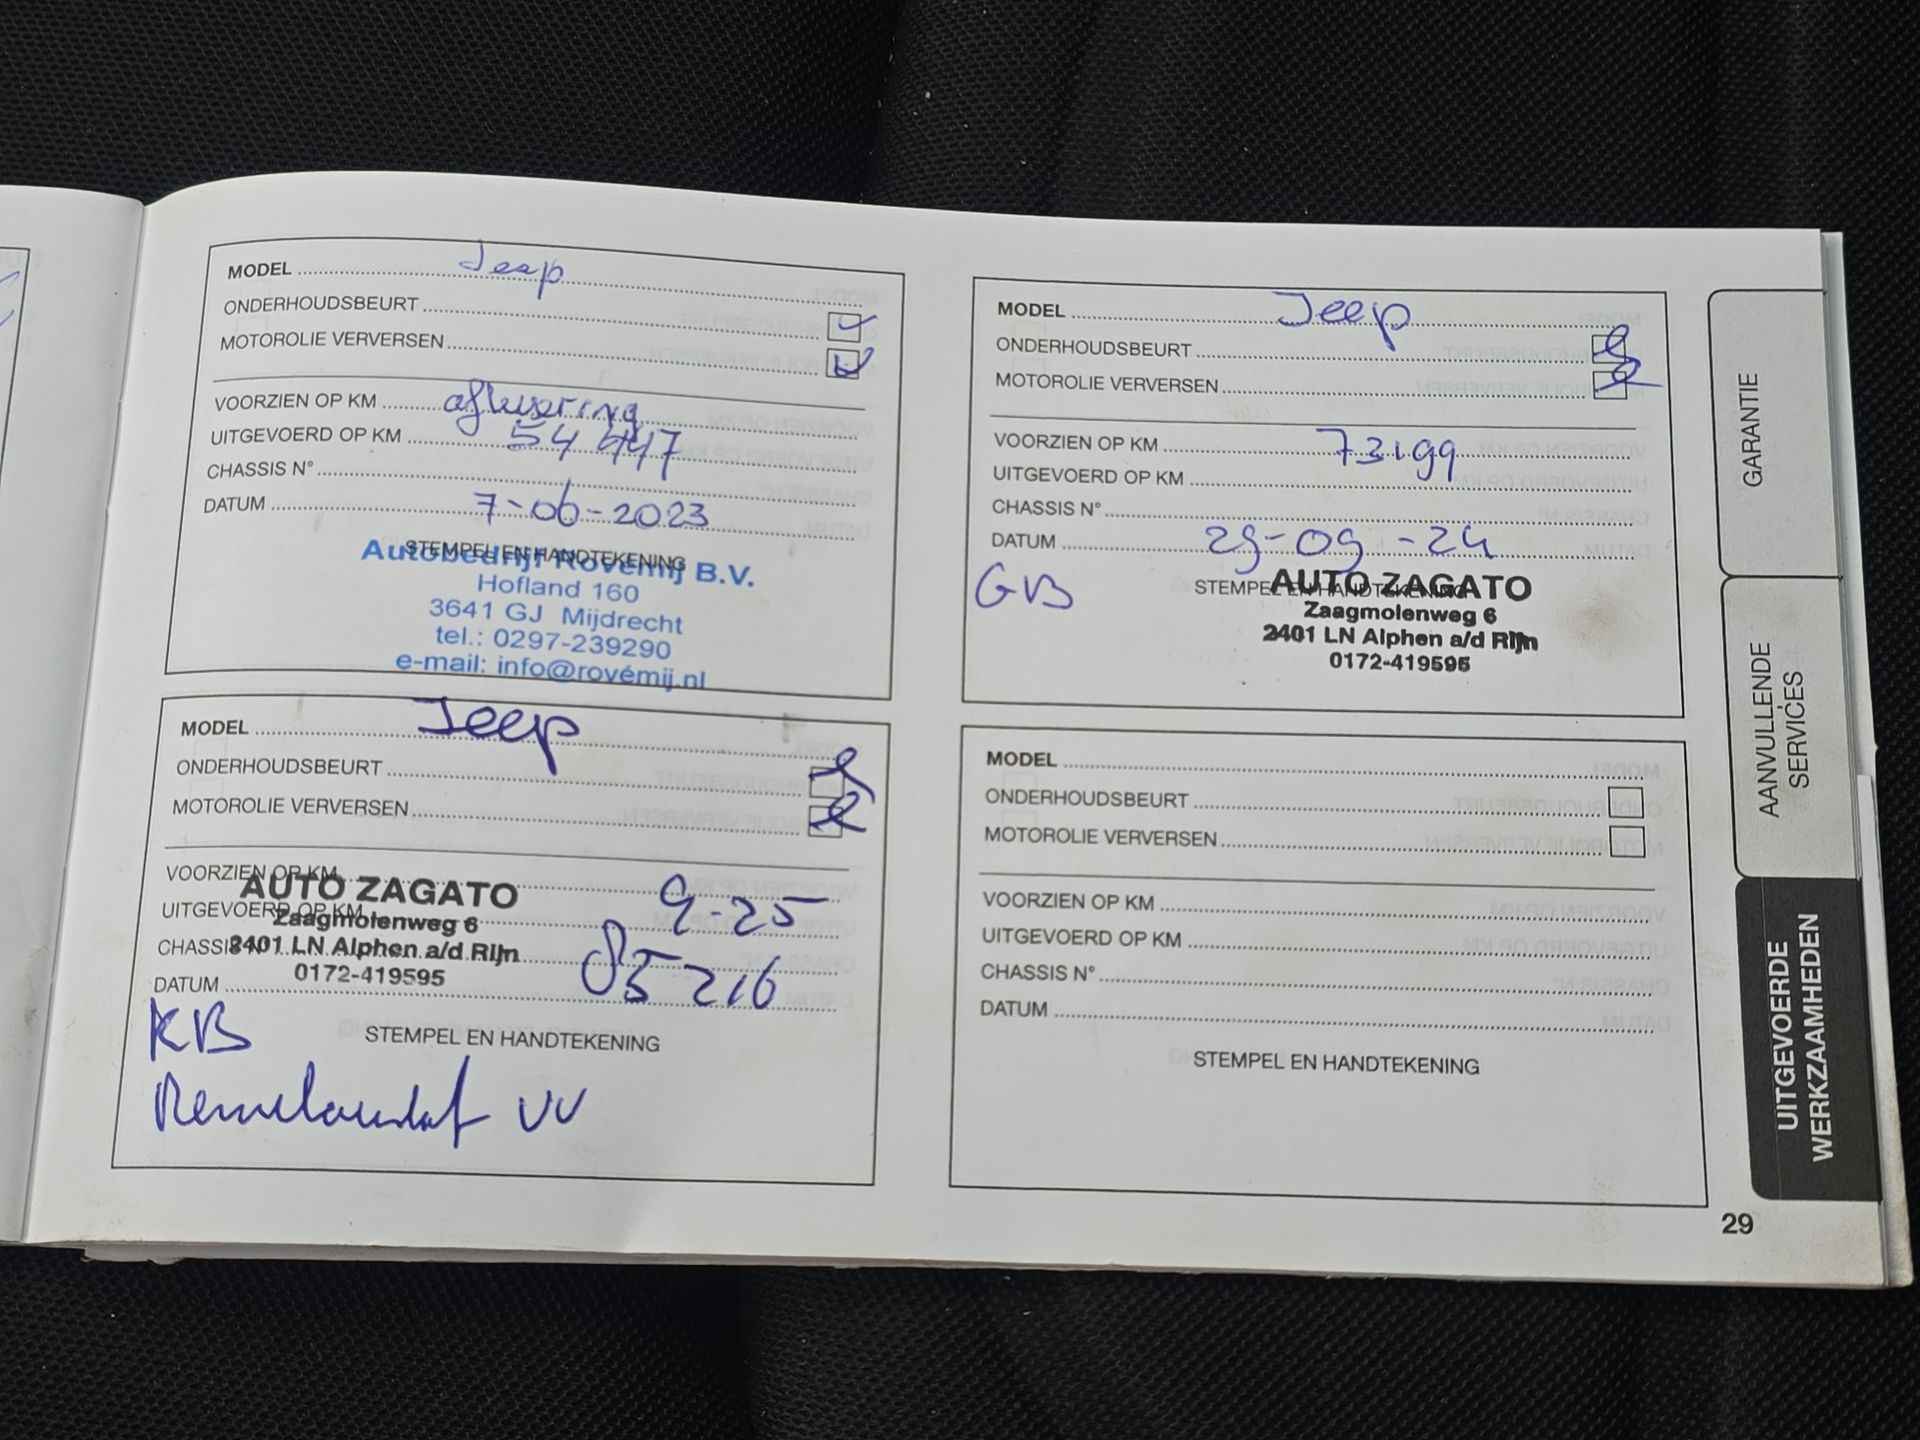 MODEL Jeep
ONDERHOUDSBEURT
MOTOROLIE VERVERSEN
VOORZIEN OP KM aflevering
UITGEVOERD OP KM 54 447
CHASSIS N°
DATUM 7-06-2023
STEMPEL EN HANDTEKENING
Autobedrijf Rovémij B.V.
Hofland 160
3641 GJ Mijdrecht
tel.: 0297-239290
e-mail: info@rovémij.nl
MODEL Jeep
ONDERHOUDSBEURT
MOTOROLIE VERVERSEN
VOORZIEN OP KM 73199
UITGEVOERD OP KM
CHASSIS N°
DATUM 29-09-24
GB
STEMPEL EN HANDTEKENING
AUTO ZAGATO
Zaagmolenweg 6
2401 LN Alphen a/d Rijn
0172-419595
MODEL Jeep
ONDERHOUDSBEURT
MOTOROLIE VERVERSEN
VOORZIEN OP KM
UITGEVOERD OP KM 9-25
CHASSIS N°
DATUM 85216
AUTO ZAGATO
Zaagmolenweg 6
2401 LN Alphen a/d Rijn
0172-419595
KB
STEMPEL EN HANDTEKENING
VV
MODEL
ONDERHOUDSBEURT
MOTOROLIE VERVERSEN
VOORZIEN OP KM
UITGEVOERD OP KM
CHASSIS N°
DATUM
STEMPEL EN HANDTEKENING
GARANTIE
AANVULLENDE
SERVICES
UITGEVOERDE
WERKZAAMHEDEN
29